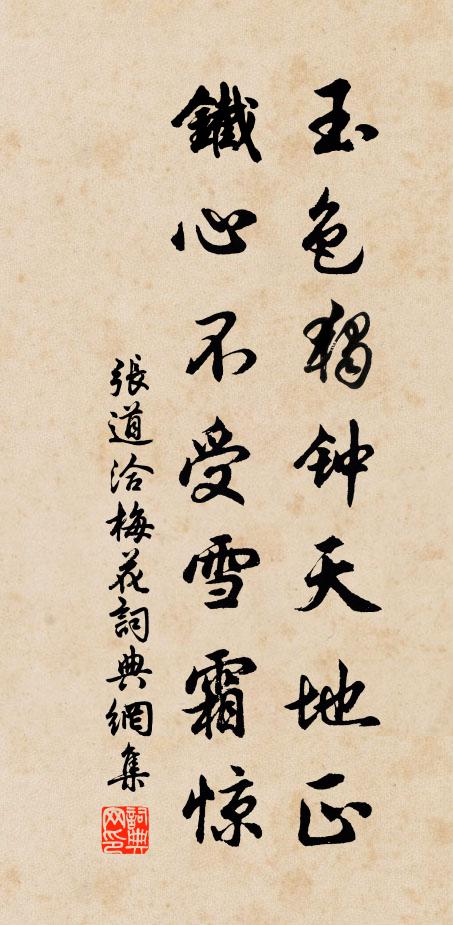 玉色独钟天地正
鐵心不受雪霜惊
張道洽梅花詞典網集
詞典網印